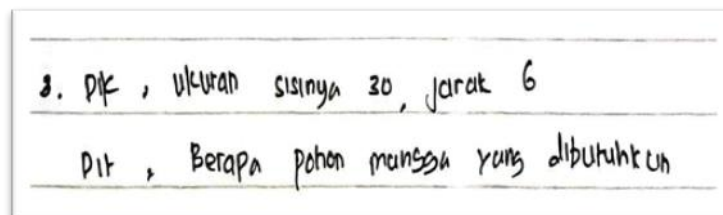 3. Dik, ukuran sisinya 30, jarak 6
Dit, Berapa pohon mangga yang dibutuhkan